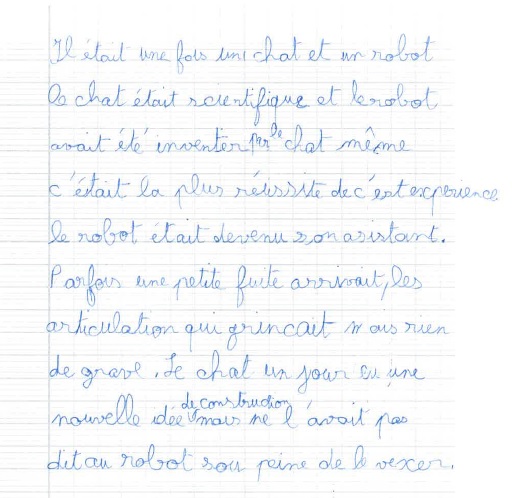 Il était une fois un chat et un robot
Le chat était scientifique et le robot
avait été inventer par le chat même
c'était la plus réissite de c'est experience
le robot était devenu son asistant.
Parfois une petite fuite arrivait, les
articulation qui grincait mais rien
de grave. Le chat un jour eu une
nouvelle idée de construction mais ne l'avait pas
dit au robot sou peine de le vexer.